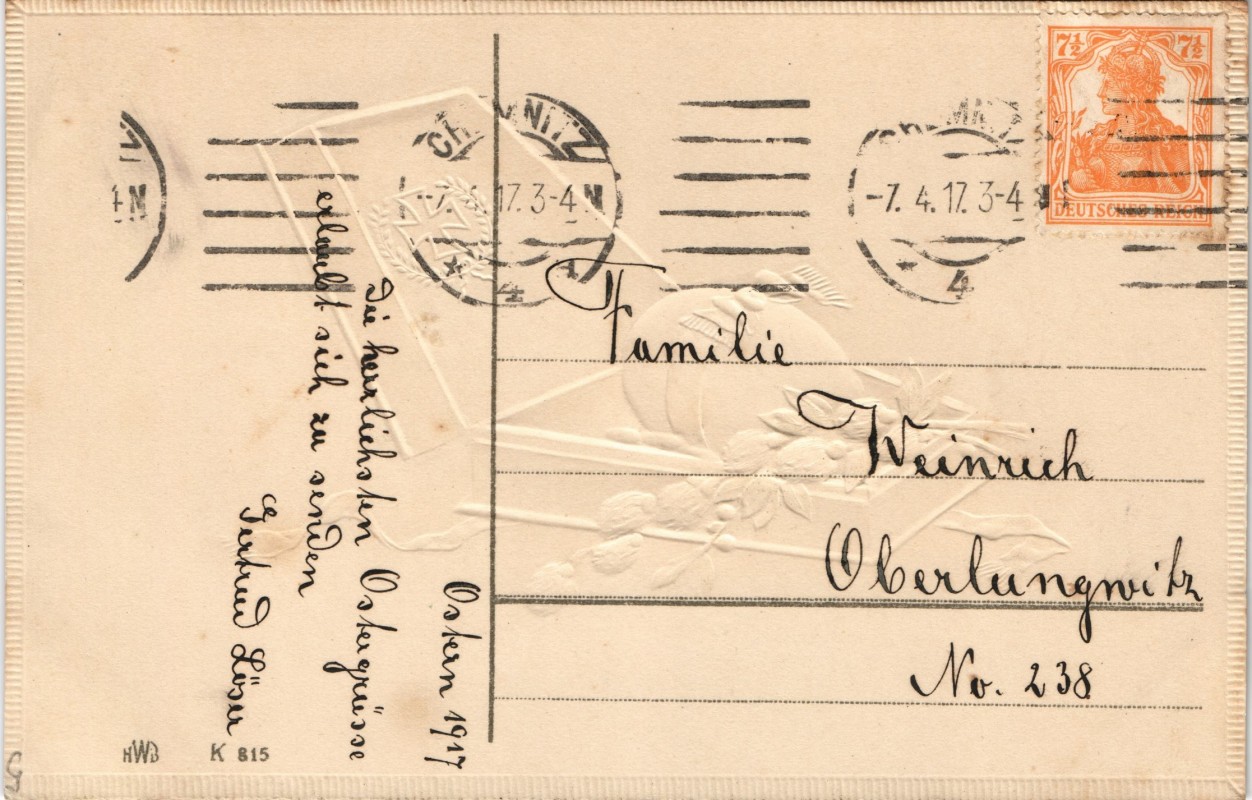 7½ 7½
DEUTSCHES REICH
CHEMNITZ
-7. 4. 17. 3-4 N
4
CHEMNITZ
-7. 4. 17. 3-4 N
4
4 N
Familie
Weinrich
Oberlungwitz
No. 238
Ostern 1917
Die herrlichsten Ostergrüsse
erlaubt sich zu senden
Gertrud Löser
HWB K 815